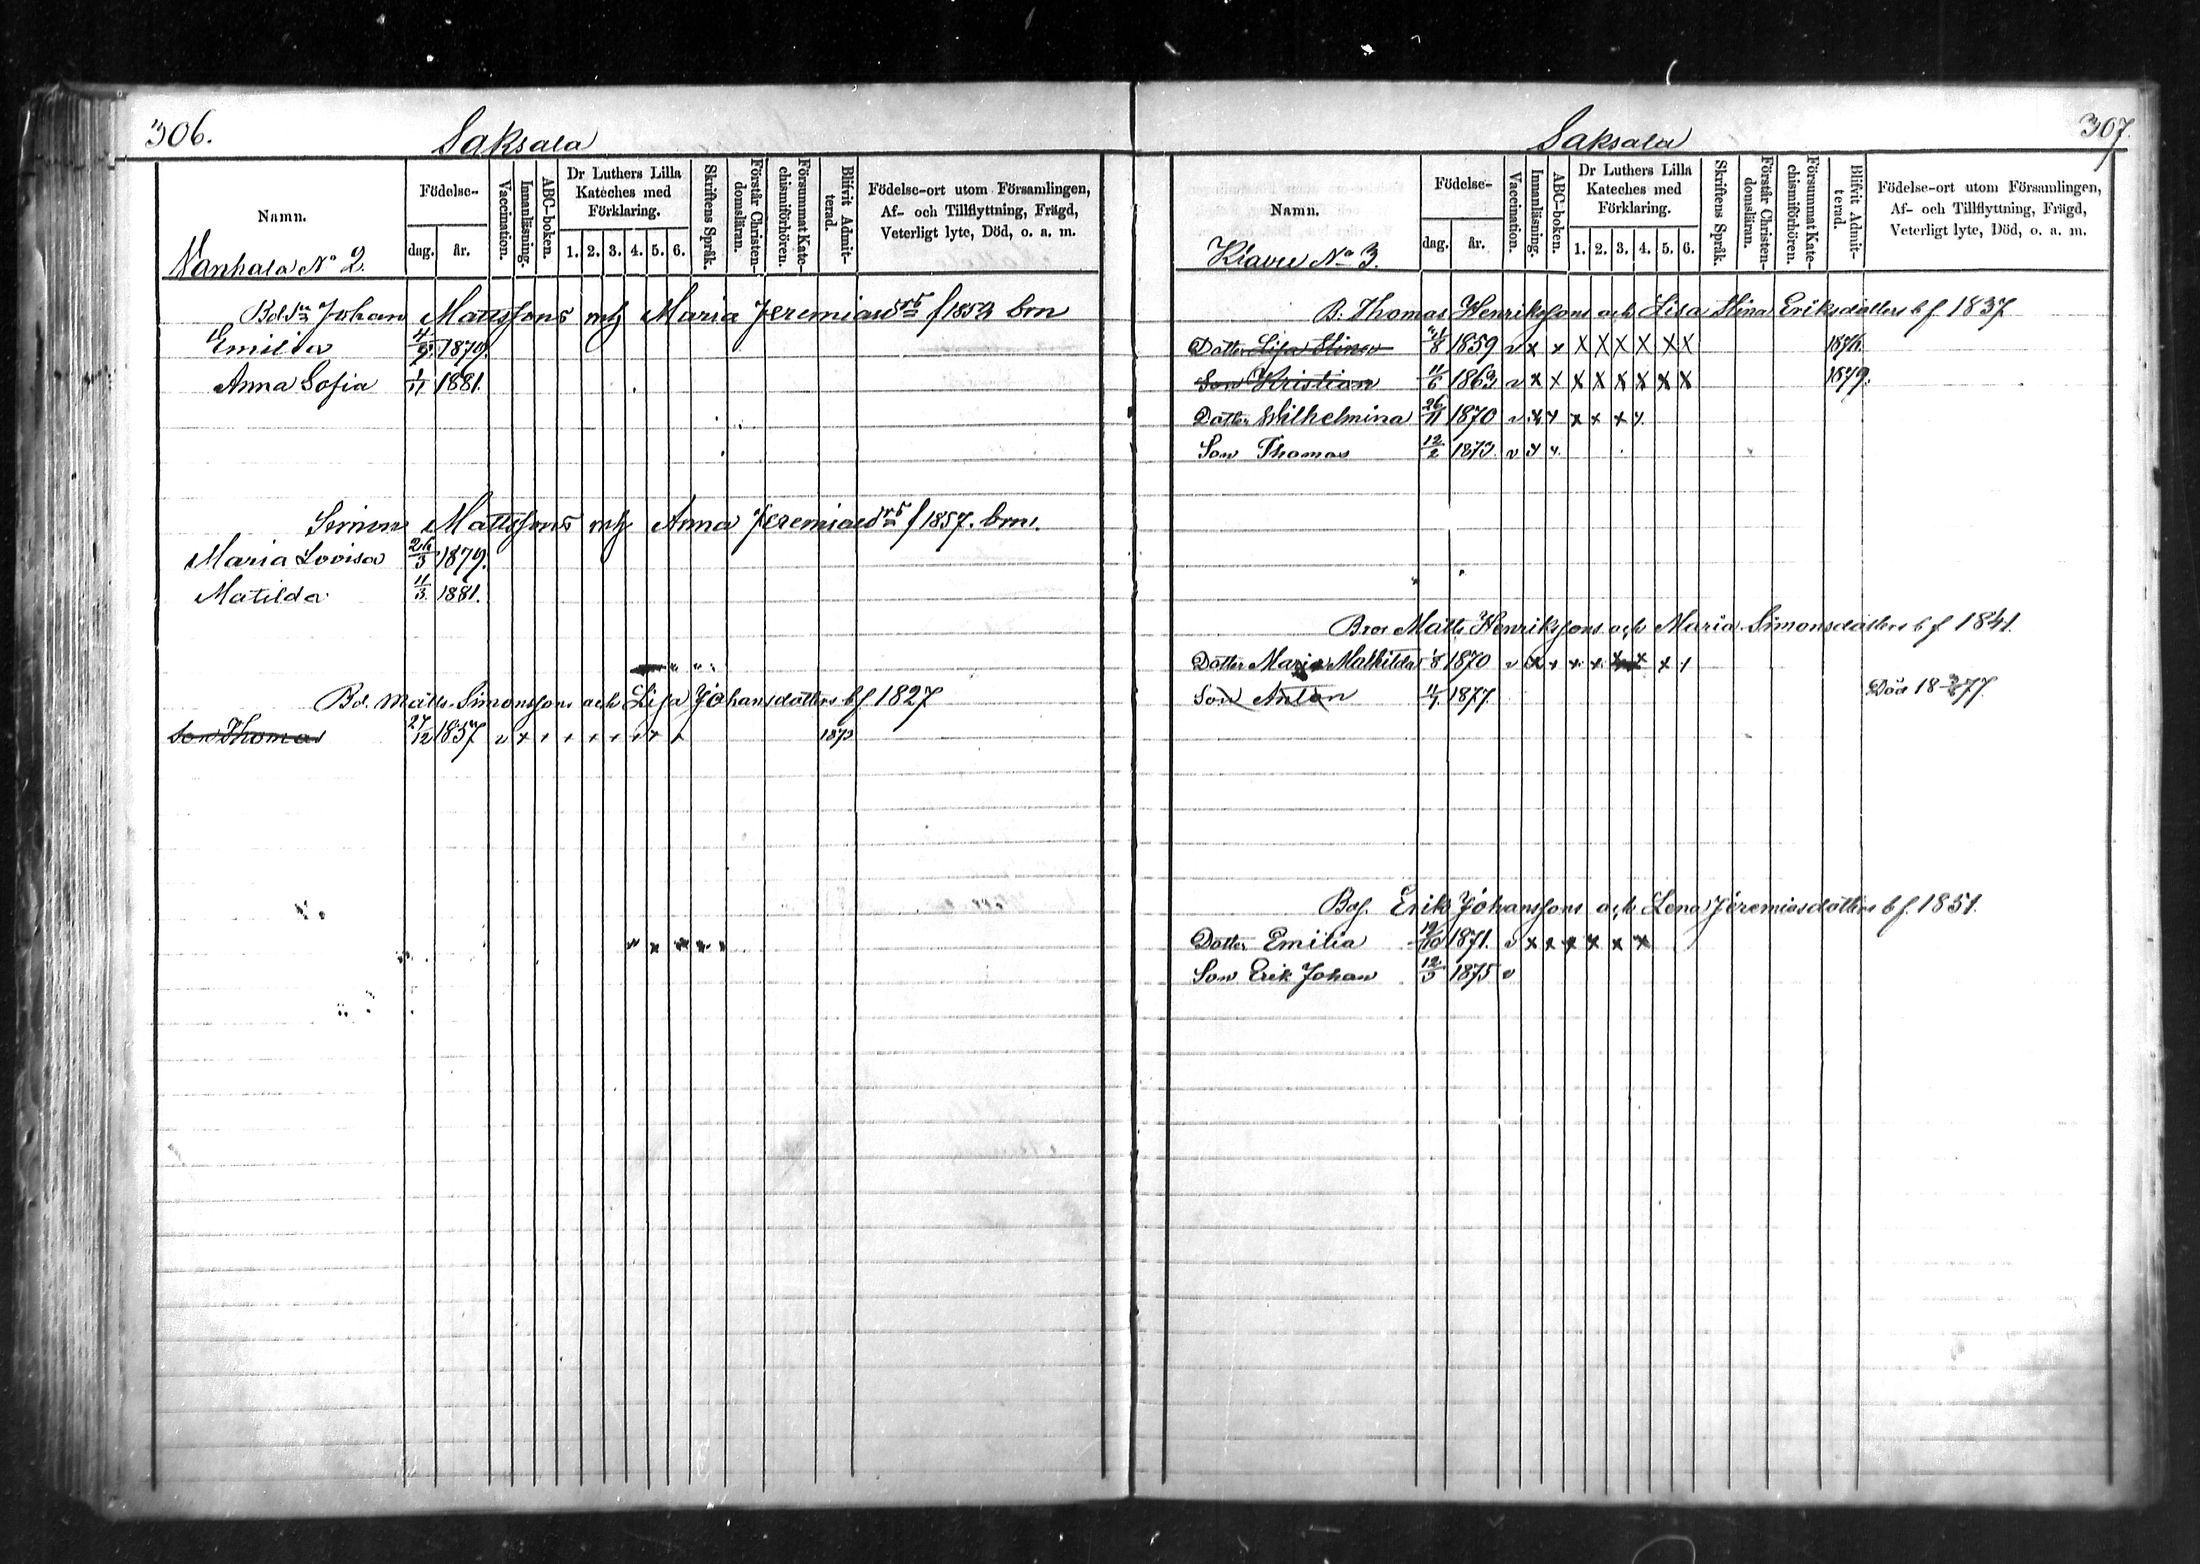 306.
Saksala
Namn.
Födelse-
dag.
år.
Vaccination.
Innanläsning.
ABC-boken.
Dr Luthers Lilla
Kateches med
Förklaring.
1. 2. 3. 4. 5. 6.
Skriftens Språk.
Förstår Christen-
domsläran.
Försummat Kate-
chismiförhören.
Blifvit Admit-
terad.
Födelse-ort utom Församlingen,
Af- och Tillflyttning, Frägd,
Veterligt lyte, Död, o. a. m.
Nanhala No 2.
Johan Mattssons Maria Jeremiasd f 1853 brn
Emilia 1879.
Anna Sofia 1881.
Mattssons Anna Jeremiasd f 1857. brn.
Maria Lovisa 26/3 1879.
Matilda 11/3 1881.
Bd. Matts Simonssons och Lisa Johansdotters bf. 1827
Son Thomas 27/12 1857 v x x x x x x x x 1873
307.
Saksala
Namn.
Födelse-
dag.
år.
Vaccination.
Innanläsning.
ABC-boken.
Dr Luthers Lilla
Kateches med
Förklaring.
1. 2. 3. 4. 5. 6.
Skriftens Språk.
Förstår Christen-
domsläran.
Försummat Kate-
chismiförhören.
Blifvit Admit-
terad.
Födelse-ort utom Församlingen,
Af- och Tillflyttning, Frägd,
Veterligt lyte, Död, o. a. m.
Klavu No 3.
B. Thomas Henrikssons och Lisa Stina Eriksdotters bf 1837
Dotter Lisa Stina 1859 v x x x x x x x x 1876.
Son Kristian 11/6 1863 v x x x x x x x x 1879.
Dotter Wilhelmina 26/11 1870 v x x x x x x
Son Thomas 12/2 1873 v x x
Bror Matts Henrikssons och Maria Simonsdotters bf 1841.
Dotter Maria Mathilda 1/8 1870 v x x x x x x x x
Son Anton 1877. Död 18 77
Erik Johanssons och Lena Jeremiasdotters bf. 1851.
Dotter Emilia 1871. v x x x x x x
Son Erik Johan 12/3 1875 v